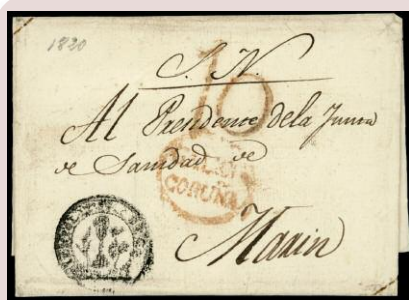 1820
S. N.
10
Al Presidente dela Junta
de Sanidad de
CORUÑA
Marin